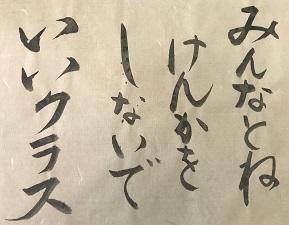 みんなとね
けんかを
しないで
いいクラス